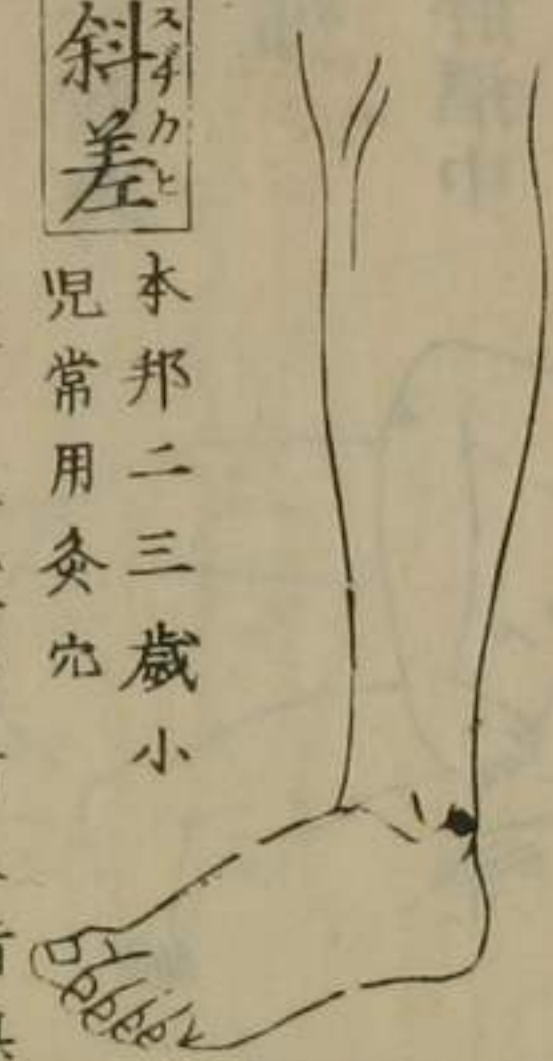 斜差
スヂカヒ
本邦二三歳小
児常用灸穴